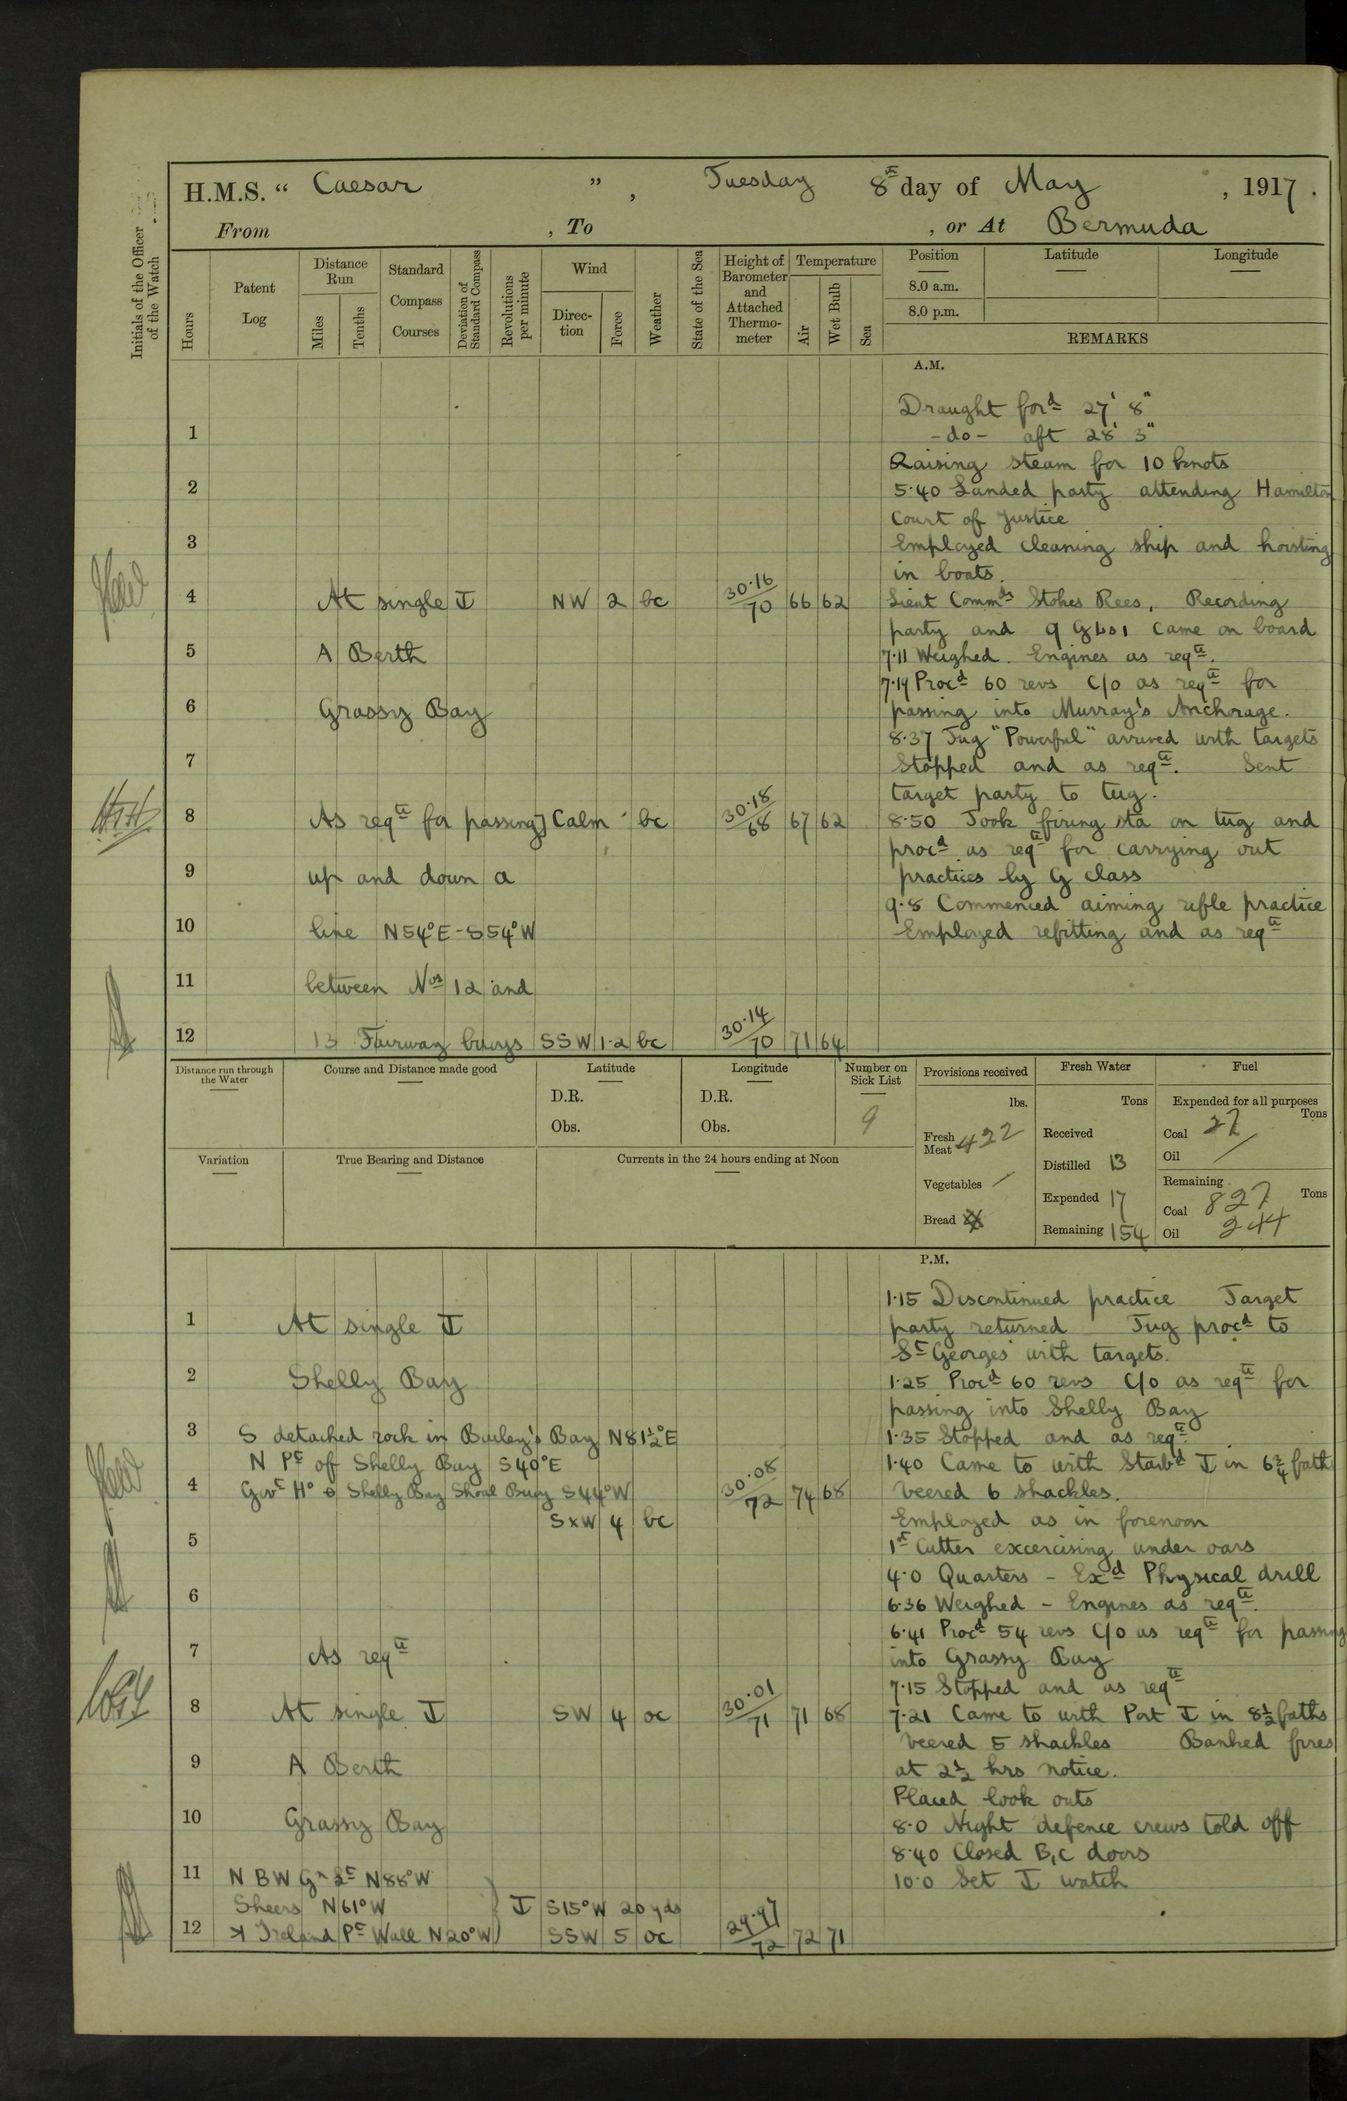 H.M.S. “ Caesar ”, Tuesday 8th day of May, 1917.
From , To , or At Bermuda
Initials of the Officer of the Watch
Hours
Patent Log
Distance Run
Miles
Tenths
Standard Compass Courses
Deviation of Standard Compass
Revolutions per minute
Wind
Direction
Force
Weather
State of the Sea
Height of Barometer and Attached Thermometer
Temperature
Air
Wet Bulb
Sea
Position
Latitude
Longitude
8.0 a.m.
8.0 p.m.
REMARKS
A.M.
Draught ford 27' 8"
-do- aft 28' 3"
Raising steam for 10 knots
5.40 Landed party attending Hamilton
Court of Justice
Employed cleaning ship and hoisting
in boats.
Lieut Commds Stokes Rees, Recording
party and 9 came on board
7.11 Weighed. Engines as reqte.
7.14 Procd 60 revs C/o as reqte for
passing into Murray's Anchorage.
8.37 Tug "Powerful" arrived with targets
Stopped and as reqte. Sent
target party to tug.
8.50 Took firing sta on tug and
procd as reqte for carrying out
practices by G class
9.8 Commenced aiming rifle practice
Employed refitting and as reqte
1
2
3
4 At single NW 2 bc 30.16/70 66 62
5 A Berth
6 Grassy Bay
7
8 As reqte for passing Calm bc 30.18/68 67 62
9 up and down a
10 line N54°E - S54°W
11 between Nos 12 and
12 13 Fairway buoys SSW 1.2 bc 30.14/70 71 64
Distance run through the Water
Course and Distance made good
Latitude
D.R.
Obs.
Longitude
D.R.
Obs.
Number on Sick List
9
Provisions received
lbs.
Fresh Meat 422
Vegetables
Bread
Fresh Water
Tons
Received
Distilled 13
Expended 17
Remaining 154
Fuel
Expended for all purposes
Tons
Coal 27
Oil
Remaining
Tons
Coal 827
Oil 244
Variation
True Bearing and Distance
Currents in the 24 hours ending at Noon
P.M.
1.15 Discontinued practice Target
party returned Tug procd to
St Georges with targets.
1.25 Procd 60 revs C/o as reqte for
passing into Shelly Bay
1.35 Stopped and as reqte.
1.40 Came to with Starbd in 6¾ fath
veered 6 shackles.
Employed as in forenoon
1st Cutter excercising under oars
4.0 Quarters - Exd Physical drill
6.36 Weighed - Engines as reqte.
6.41 Procd 54 revs C/o as reqte for passing
into Grassy Bay
7.15 Stopped and as reqte
7.21 Came to with Port in 8½ faths
veered 5 shackles Banked fires
at 2½ hrs notice.
Placed look outs
8.0 Night defence crews told off
8.40 Closed B,C doors
10.0 Set watch
1 At single
2 Shelly Bay
3 S detached rock in Bay N81½°E
N Pt off Shelly Bay S40°E
4 Govt Ho Shelly Bay Shoal Buoy S44°W 30.08/72 74 68
SxW 4 bc
5
6
7 As reqte
8 At single SW 4 oc 30.01/71 71 68
9 A Berth
10 Grassy Bay
11 N B W N88°W
Sheers N61°W S15°W 20 yds
12 Ireland Pt Wall N20°W SSW 5 oc 29.97/72 72 71